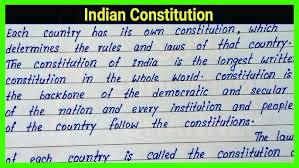 Indian Constitution
Each country has its own constitution, which
determines the rules and laws of that country.
The constitution of India is the longest written
constitution in the whole world. constitution is
the backbone of the democratic and secular
of the nation and every institution and people
of the country follow the constitutions.
The law
of each country is called the constitution of